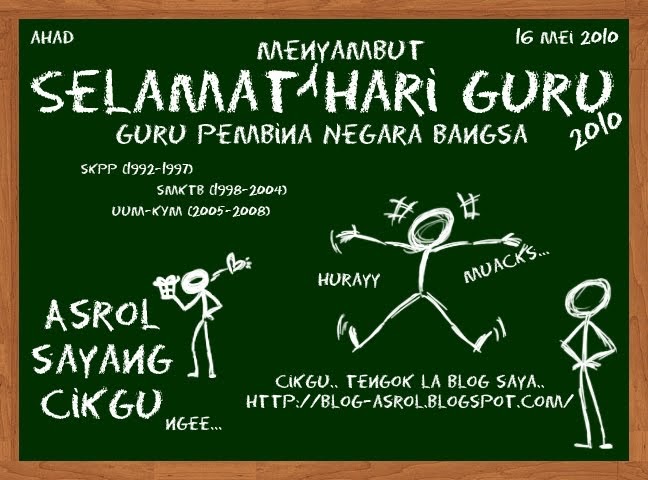 AHAD
16 MEI 2010
MENYAMBUT
SELAMAT HARI GURU
2010
GURU PEMBINA NEGARA BANGSA
SKPP (1992-1997)
SMKTB (1998-2004)
UUM-KYM (2005-2008)
HURAYY
MUACKS...
ASROL
SAYANG
CIKGU
NGEE...
CIKGU.. TENGOK LA BLOG SAYA..
HTTP://BLOG-ASROL.BLOGSPOT.COM/